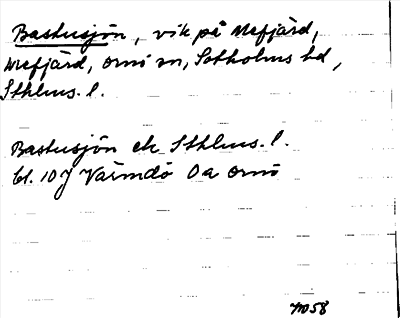 Bastusjön, vik på Mefjärd,
Mefjärd, Ornö sn, Sotholms hd,
Sthlms. l.
Bastusjön ek Sthlms. l.
bl. 10 J Värmdö Oa Ornö
M58